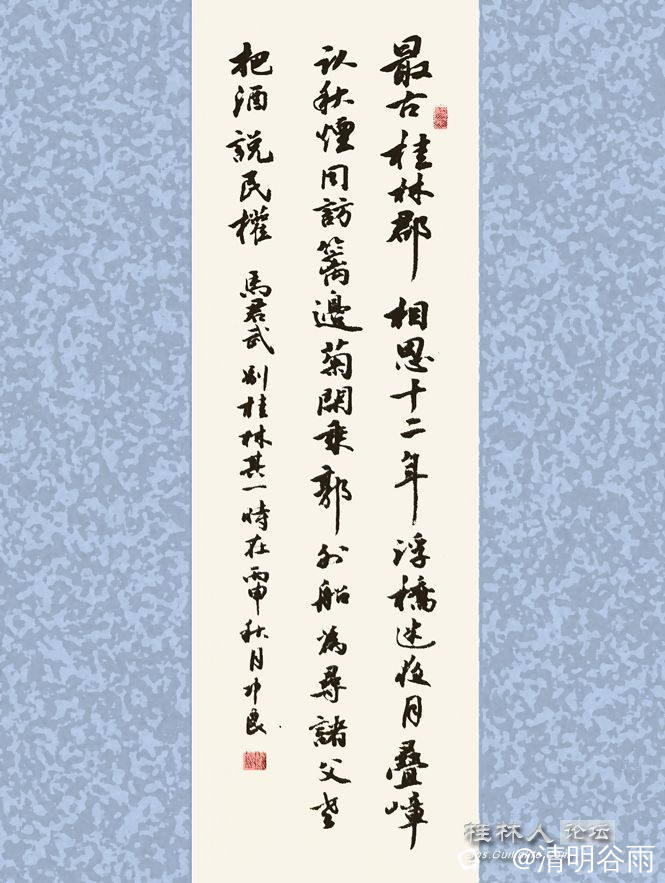 最古桂林郡 相思十二年浮橋迷夜月疊嶂
认秋煙同訪籬邊菊閑乘郭外船為尋諸父老
把酒説民權 馬君武别桂林其一時在丙申秋月良
桂林人论坛
@清明谷雨